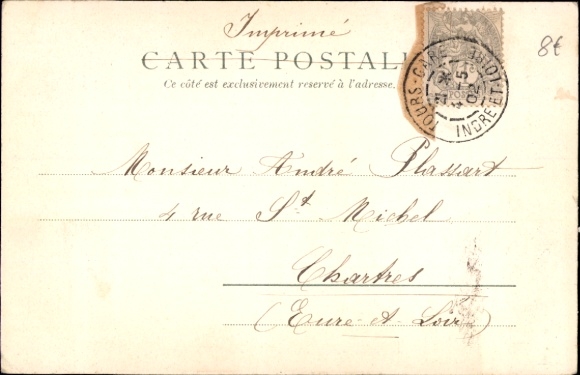 Imprimé
8€
CARTE POSTAL
Ce côté est exclusivement reservé à l'adresse.
TOURS-GARE
INDRE ET LOIRE
Monsieur André Plassart
4 rue St Michel
Chartres
(Eure-et-Loir)